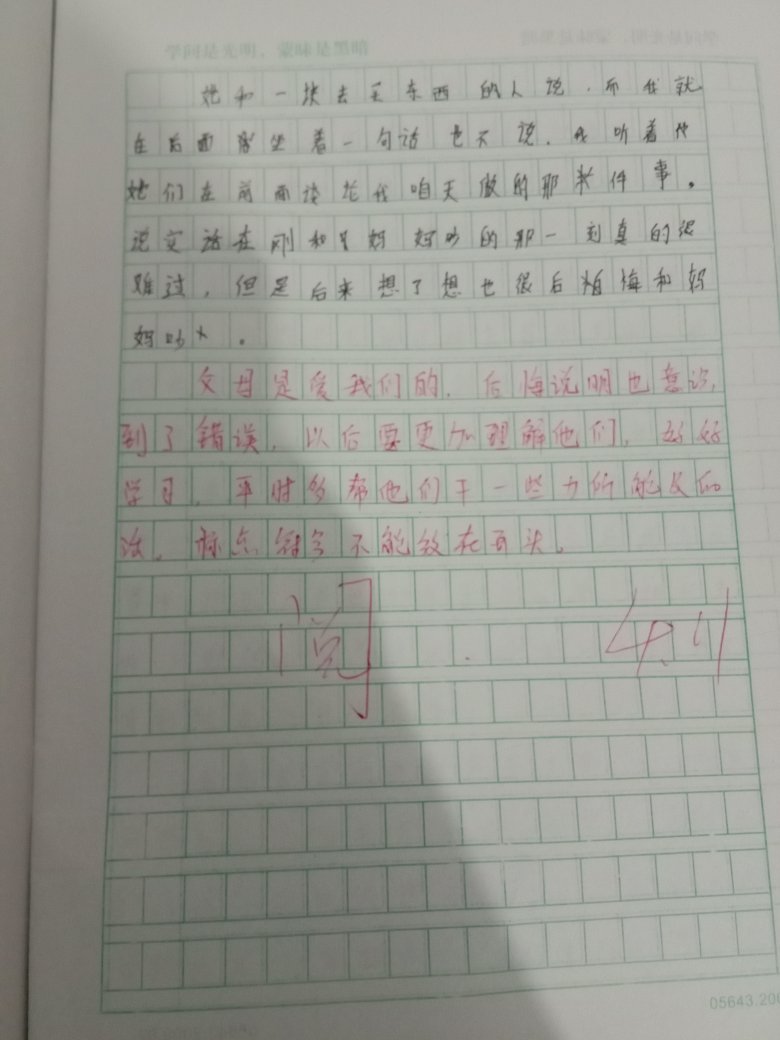 学问是光明，蒙昧是黑暗
她和一块去买东西的人说，而我就
在后面坐着一句话也不说，我听着
她们在前面谈论我咱天做的那件事。
说实话在刚和妈妈吵的那一刻真的很
难过，但是后来想了想也很后悔和妈
妈吵。
父母是爱我们的，后悔说明也意识
到了错误，以后要更加理解他们，好好
学习，平时多帮他们干一些力所能及的
活。标点符号不能放在开头。
阅 4.11
05643.200